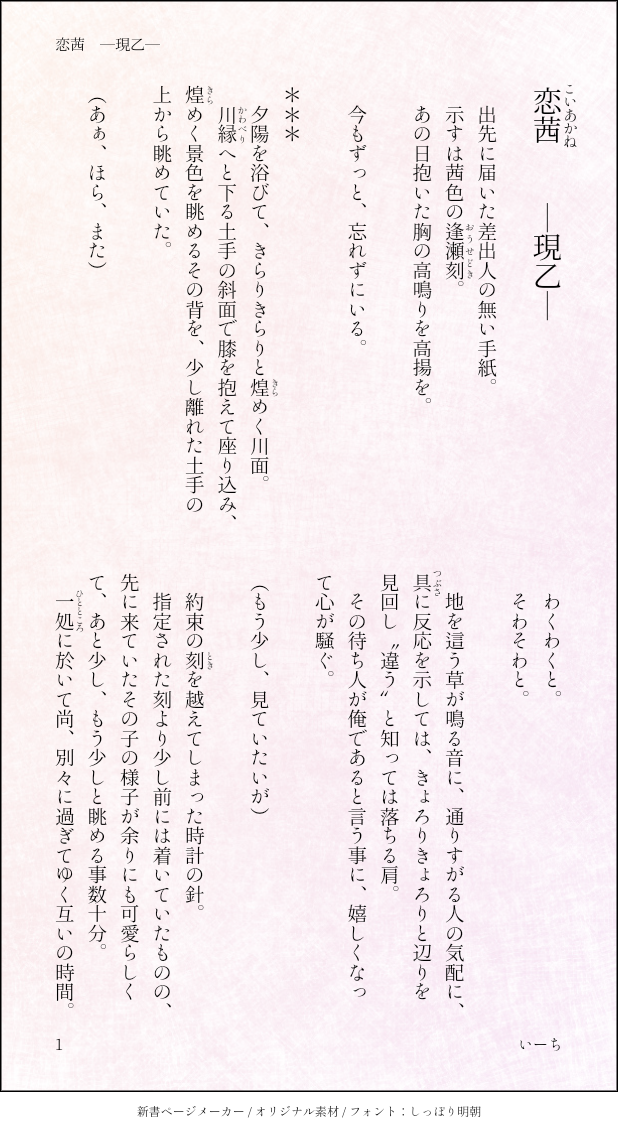 恋茜　―現乙―
恋茜　　―現乙―
こいあかね
出先に届いた差出人の無い手紙。
示すは茜色の逢瀬刻。
おうせどき
あの日抱いた胸の高鳴りを高揚を。
今もずっと、忘れずにいる。
＊＊＊
夕陽を浴びて、きらりきらりと煌めく川面。
きら
川縁へと下る土手の斜面で膝を抱えて座り込み、
かわべり
煌めく景色を眺めるその背を、少し離れた土手の
きら
上から眺めていた。
（あぁ、ほら、また）
わくわくと。
そわそわと。
地を這う草が鳴る音に、通りすがる人の気配に、
具に反応を示しては、きょろりきょろりと辺りを
つぶさ
見回し〝違う〟と知っては落ちる肩。
その待ち人が俺であると言う事に、嬉しくなっ
て心が騒ぐ。
（もう少し、見ていたいが）
約束の刻を越えてしまった時計の針。
とき
指定された刻より少し前には着いていたものの、
先に来ていたその子の様子が余りにも可愛らしく
て、あと少し、もう少しと眺める事数十分。
一処に於いて尚、別々に過ぎてゆく互いの時間。
ひとところ
いーち
1
新書ページメーカー / オリジナル素材 / フォント：しっぽり明朝